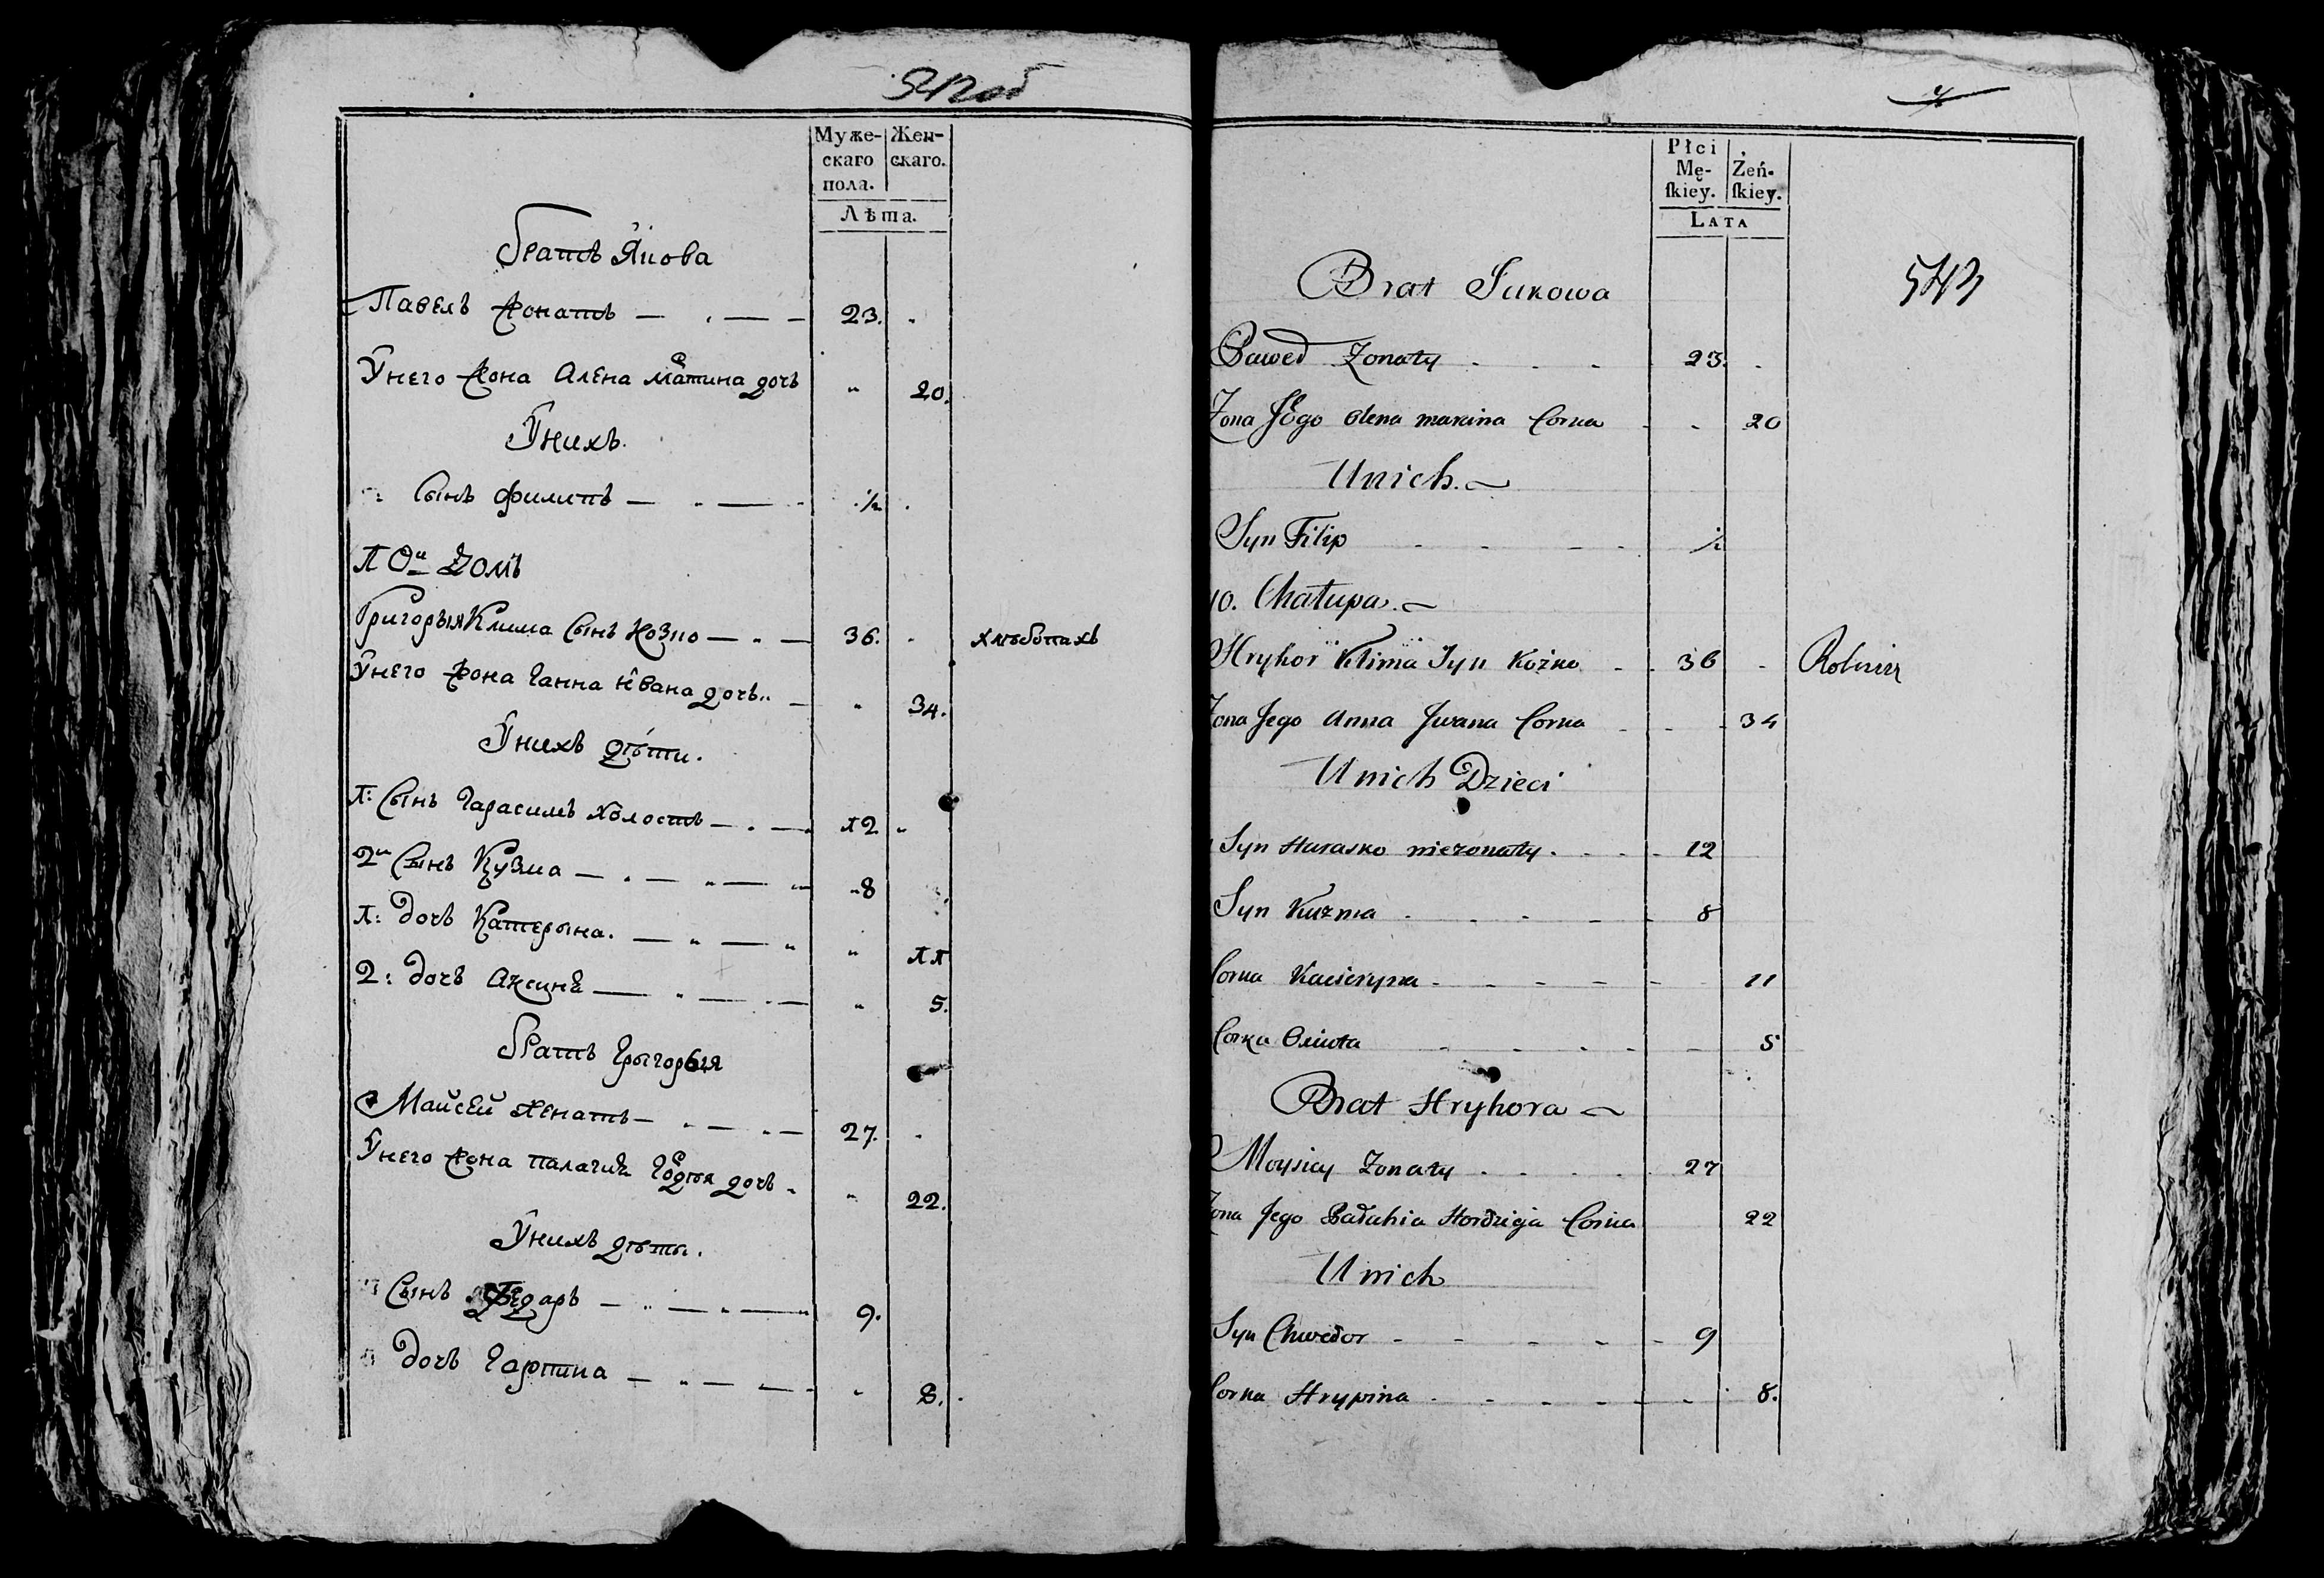 542 об
Муже-
скаго
пола.
Жен-
скаго.
Лѣта.
Братъ Якова
Павелъ жонатъ — . — — 23. "
Унего жона Алена мак͡ина дочъ " 20.
Унихъ.
Сынъ филипъ — " — ½ .
10й Домъ
Григорыя Клима Сынъ Козко — " — 36. . хлѣбопахъ
Унего жона Ганна Ивана дочъ — " 34.
Унихъ дѣти.
1: Сынъ Гарасимъ холостъ — . — 12 "
2й Сынъ Кузма — . — " — "8
1: дочъ Катерына. — " — " " 11
2: дочъ — " — " 5.
Братъ Грыгорыя
Майсей женатъ — . — " — 27. .
Унего жона палагия дочъ " " 22.
Унихъ дѣты.
Сынъ Федаръ — " — " — 9.
дочъ Гарпина — " — — " 8.
Płci
Mę-
ſkiey.
Żeń-
ſkiey.
Lata
543
Brat Jakowa
Paweł Zonaty 23.
Zona Jego Olena makina Corka 20
Unich.
Syn Filip ½
10. Chałupa.
Hryhor Klima Syn Kozko 36 Rolnik
Zona Jego Anna Jwana Corka 34
Unich Dzieci
Syn Harasko niezonaty. 12
Syn Kuzma 8
Corka Kacieryna 11
Corka 5
Brat Hryhora
Moysiey Zonaty 27
Zona Jego Pałahia Hordzieja Corka 22
Unich
Syn Chwedor 9
Corka Hrypina 8.